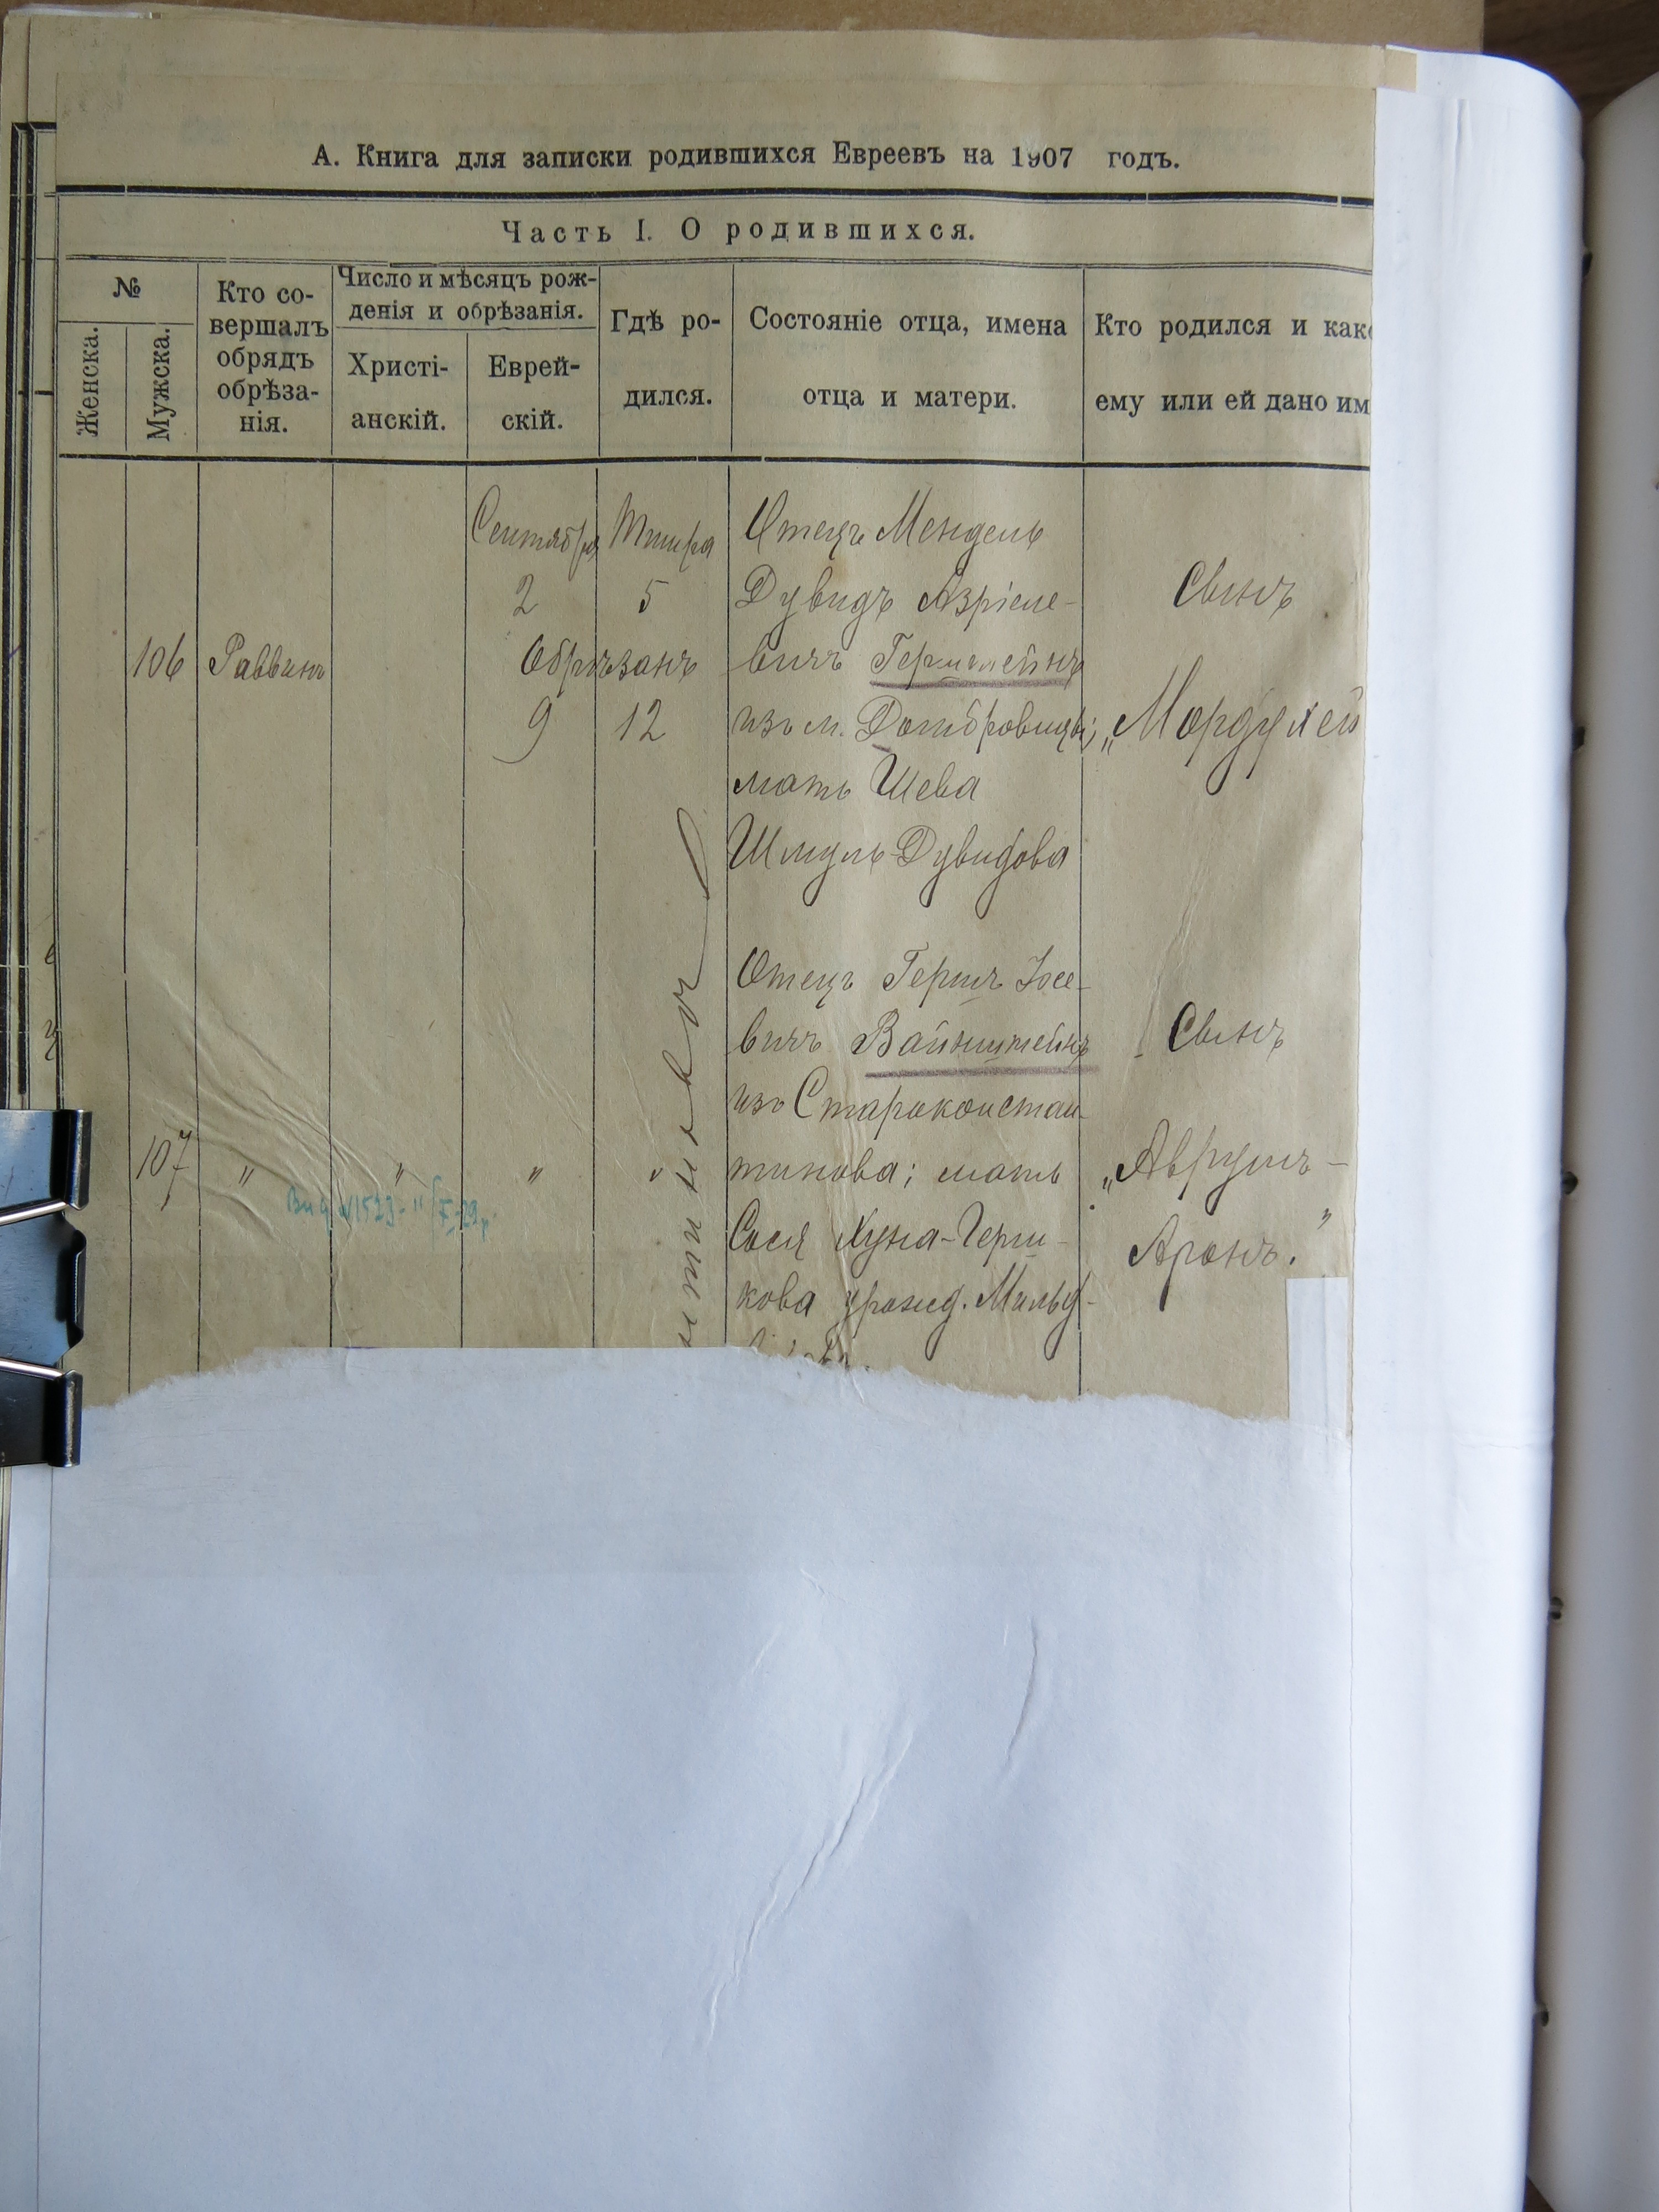 А. Книга для записки родившихся Евреевъ на 1907 годъ.
Часть I. О родившихся.
№
Женска.
Мужска.
Кто со-
вершалъ
обрядъ
обрѣза-
нія.
Число и мѣсяцъ рож-
денія и обрѣзанія.
Христі-
анскій.
Еврей-
скій.
Гдѣ ро-
дился.
Состояніе отца, имена
отца и матери.
Кто родился и како
ему или ей дано им
106
Раввинъ
Сентября
2
Тишра
5
Обрѣзанъ
9 12
Отецъ Мендель
Дувидъ Азріеле-
вичъ
изъ м. Домбровицы;
мать Шева
Шмуль-Дувидова
Сынъ
„Мордухей
107
"
"
"
"
Отецъ Гершъ Іосе-
вичъ Вайнштейнъ
изъ Староконстан-
тинова; мать
Сося Хуна-Герш-
кова урожд. Мильд-
Сынъ
„Аврумъ-
Аронъ."